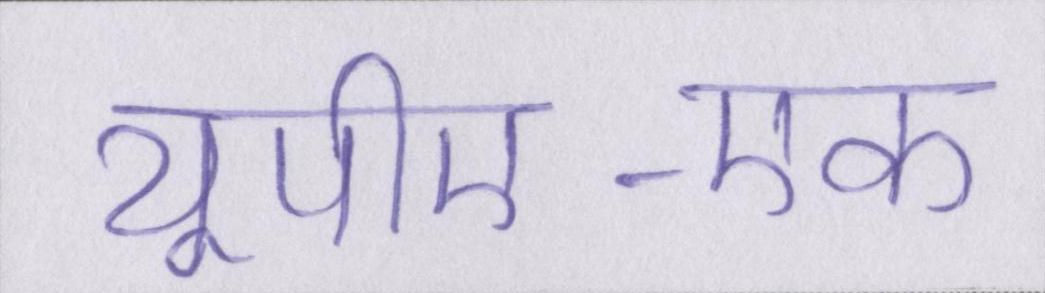 यूपीए-एक